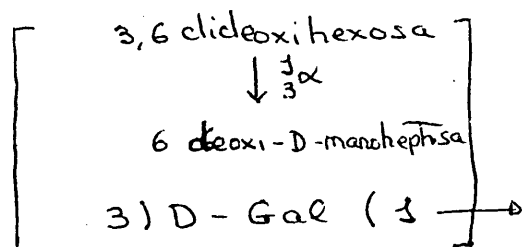 3,6 dideoxihexosa
↓ 1 α
3
6 deoxi-D-manoheptosa
3) D-Gal (1 →